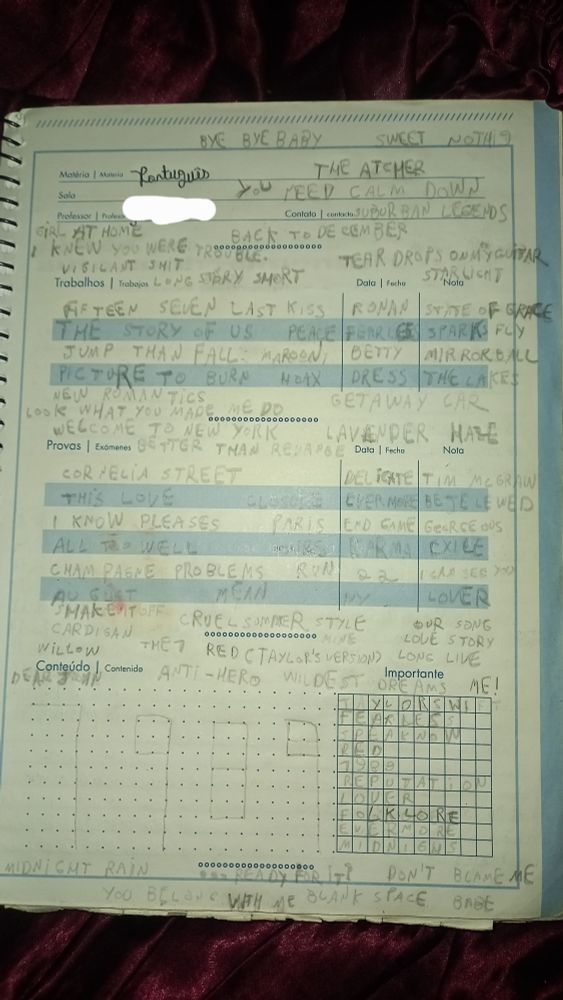 BYE BYE BABY SWEET NOTHI9
Matéria | Materia Português THE ATCHER
Sala YOU NEED CALM DOWN
Professor | Profesor Contato | contacto SUBURBAN LEGENDS
GIRL AT HOME BACK TO DECEMBER
I KNEW YOU WERE TROUBLE. TEAR DROPS ON MY GUITAR
VIGILANT SHIT STARLIGHT
Trabalhos | Trabajos LONG STORY SHORT Data | Fecha Nota
FIFTEEN SEVEN LAST KISS RONAN STATE OF GRACE
THE STORY OF US PEACE FEARLES SPARKS FLY
JUMP THAN FALL. MAROON BETTY MIRRORBALL
PICTURE TO BURN HOAX DRESS THE LAKES
NEW ROMANTICS GETAWAY CAR
LOOK WHAT YOU MADE ME DO
WELCOME TO NEW YORK LAVENDER HAZE
Provas | Exámenes BETTER THAN REVANGE Data | Fecha Nota
CORNELIA STREET DELICATE TIM MCGRAW
THIS LOVE EVERMORE BEJELEWED
I KNOW PLEASES PARIS END GAME GEORGEOUS
ALL TOO WELL KARMA EXILE
CHAMPAGNE PROBLEMS RUN 22 I CAN SEE YOU
AUGUST MEAN LOVER
SHAKE IT OFF CRUEL SOMMER STYLE OUR SONG
CARDIGAN MINE LOVE STORY
WILLOW THE 1 RED (TAYLOR'S VERSION) LONG LIVE
Conteúdo | Contenido ANTI-HERO WILDEST DREAMS ME!
DEAR JOHN Importante
TAYLOR SWIFT
FEARLESS
SPEAK NOW
RED
1989
REPUTATION
LOVER
FOLKLORE
EVERMORE
MIDNIGHS
MIDNIGHT RAIN ... READY FOR IT? DON'T BLAME ME
YOU BELONG WITH ME BLANK SPACE BABE